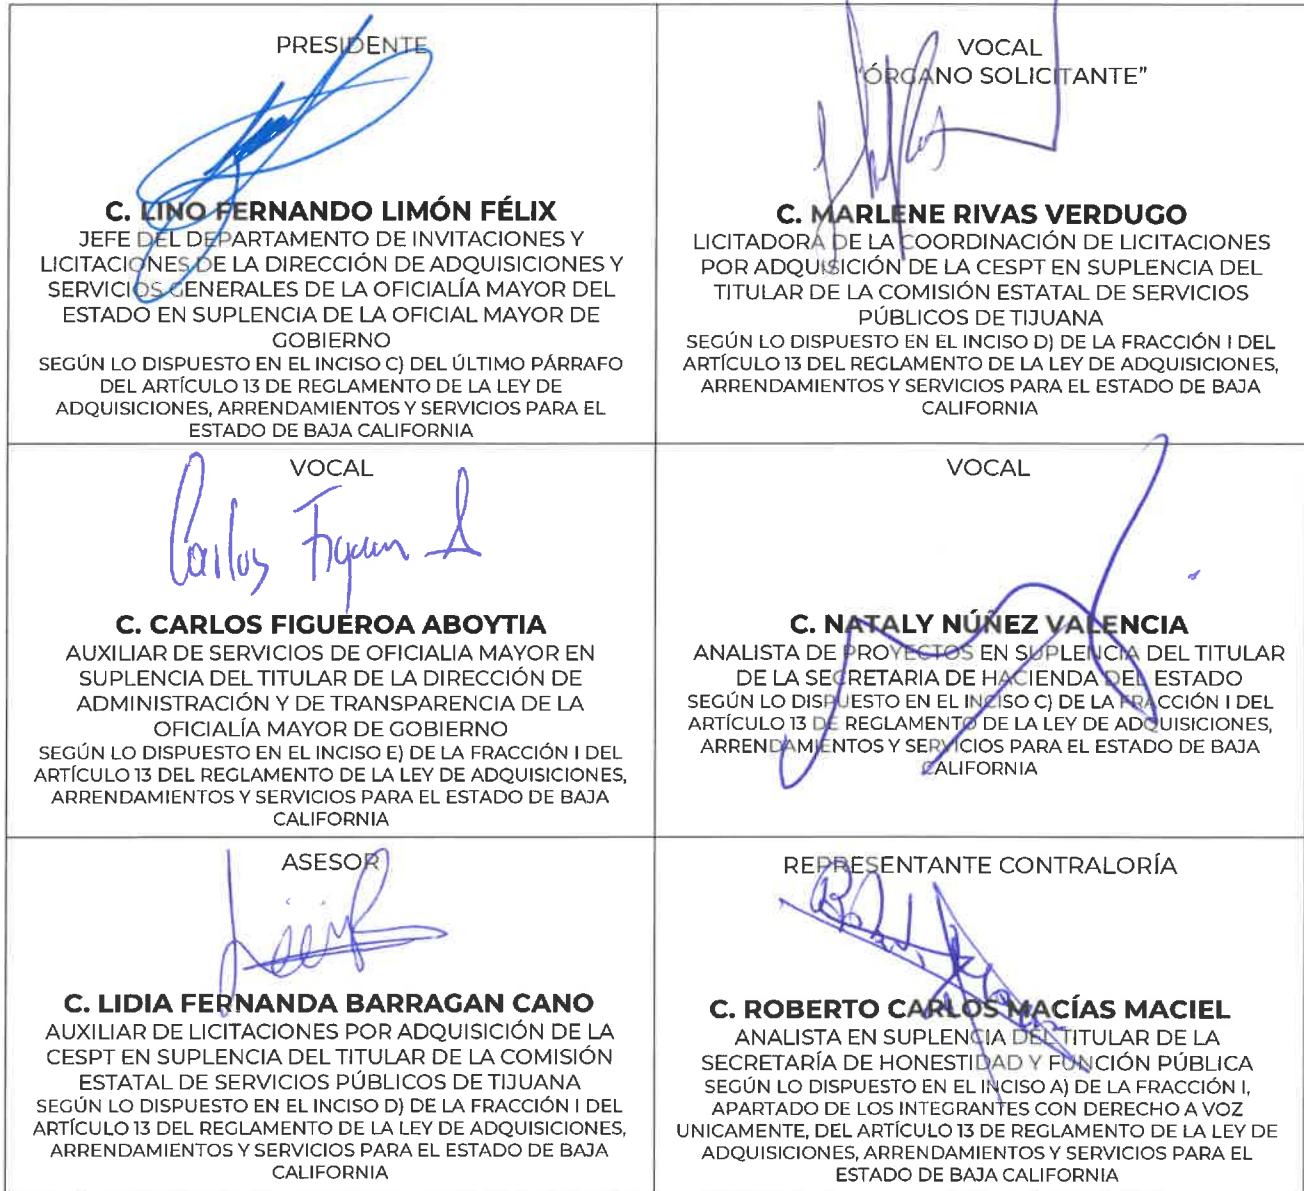 PRESIDENTE
C. LINO FERNANDO LIMÓN FÉLIX
JEFE DEL DEPARTAMENTO DE INVITACIONES Y
LICITACIONES DE LA DIRECCIÓN DE ADQUISICIONES Y
SERVICIOS GENERALES DE LA OFICIALÍA MAYOR DEL
ESTADO EN SUPLENCIA DE LA OFICIAL MAYOR DE
GOBIERNO
SEGÚN LO DISPUESTO EN EL INCISO C) DEL ÚLTIMO PÁRRAFO
DEL ARTÍCULO 13 DE REGLAMENTO DE LA LEY DE
ADQUISICIONES, ARRENDAMIENTOS Y SERVICIOS PARA EL
ESTADO DE BAJA CALIFORNIA
VOCAL
"ÓRGANO SOLICITANTE"
C. MARLENE RIVAS VERDUGO
LICITADORA DE LA COORDINACIÓN DE LICITACIONES
POR ADQUISICIÓN DE LA CESPT EN SUPLENCIA DEL
TITULAR DE LA COMISIÓN ESTATAL DE SERVICIOS
PÚBLICOS DE TIJUANA
SEGÚN LO DISPUESTO EN EL INCISO D) DE LA FRACCIÓN I DEL
ARTÍCULO 13 DEL REGLAMENTO DE LA LEY DE ADQUISICIONES,
ARRENDAMIENTOS Y SERVICIOS PARA EL ESTADO DE BAJA
CALIFORNIA
VOCAL
Carlos Figueroa A
C. CARLOS FIGUEROA ABOYTIA
AUXILIAR DE SERVICIOS DE OFICIALIA MAYOR EN
SUPLENCIA DEL TITULAR DE LA DIRECCIÓN DE
ADMINISTRACIÓN Y DE TRANSPARENCIA DE LA
OFICIALÍA MAYOR DE GOBIERNO
SEGÚN LO DISPUESTO EN EL INCISO E) DE LA FRACCIÓN I DEL
ARTÍCULO 13 DEL REGLAMENTO DE LA LEY DE ADQUISICIONES,
ARRENDAMIENTOS Y SERVICIOS PARA EL ESTADO DE BAJA
CALIFORNIA
VOCAL
C. NATALY NÚÑEZ VALENCIA
ANALISTA DE PROYECTOS EN SUPLENCIA DEL TITULAR
DE LA SECRETARIA DE HACIENDA DEL ESTADO
SEGÚN LO DISPUESTO EN EL INCISO C) DE LA FRACCIÓN I DEL
ARTÍCULO 13 DE REGLAMENTO DE LA LEY DE ADQUISICIONES,
ARRENDAMIENTOS Y SERVICIOS PARA EL ESTADO DE BAJA
CALIFORNIA
ASESOR
C. LIDIA FERNANDA BARRAGAN CANO
AUXILIAR DE LICITACIONES POR ADQUISICIÓN DE LA
CESPT EN SUPLENCIA DEL TITULAR DE LA COMISIÓN
ESTATAL DE SERVICIOS PÚBLICOS DE TIJUANA
SEGÚN LO DISPUESTO EN EL INCISO D) DE LA FRACCIÓN I DEL
ARTÍCULO 13 DEL REGLAMENTO DE LA LEY DE ADQUISICIONES,
ARRENDAMIENTOS Y SERVICIOS PARA EL ESTADO DE BAJA
CALIFORNIA
REPRESENTANTE CONTRALORÍA
C. ROBERTO CARLOS MACÍAS MACIEL
ANALISTA EN SUPLENCIA DEL TITULAR DE LA
SECRETARÍA DE HONESTIDAD Y FUNCIÓN PÚBLICA
SEGÚN LO DISPUESTO EN EL INCISO A) DE LA FRACCIÓN I,
APARTADO DE LOS INTEGRANTES CON DERECHO A VOZ
UNICAMENTE, DEL ARTÍCULO 13 DE REGLAMENTO DE LA LEY DE
ADQUISICIONES, ARRENDAMIENTOS Y SERVICIOS PARA EL
ESTADO DE BAJA CALIFORNIA